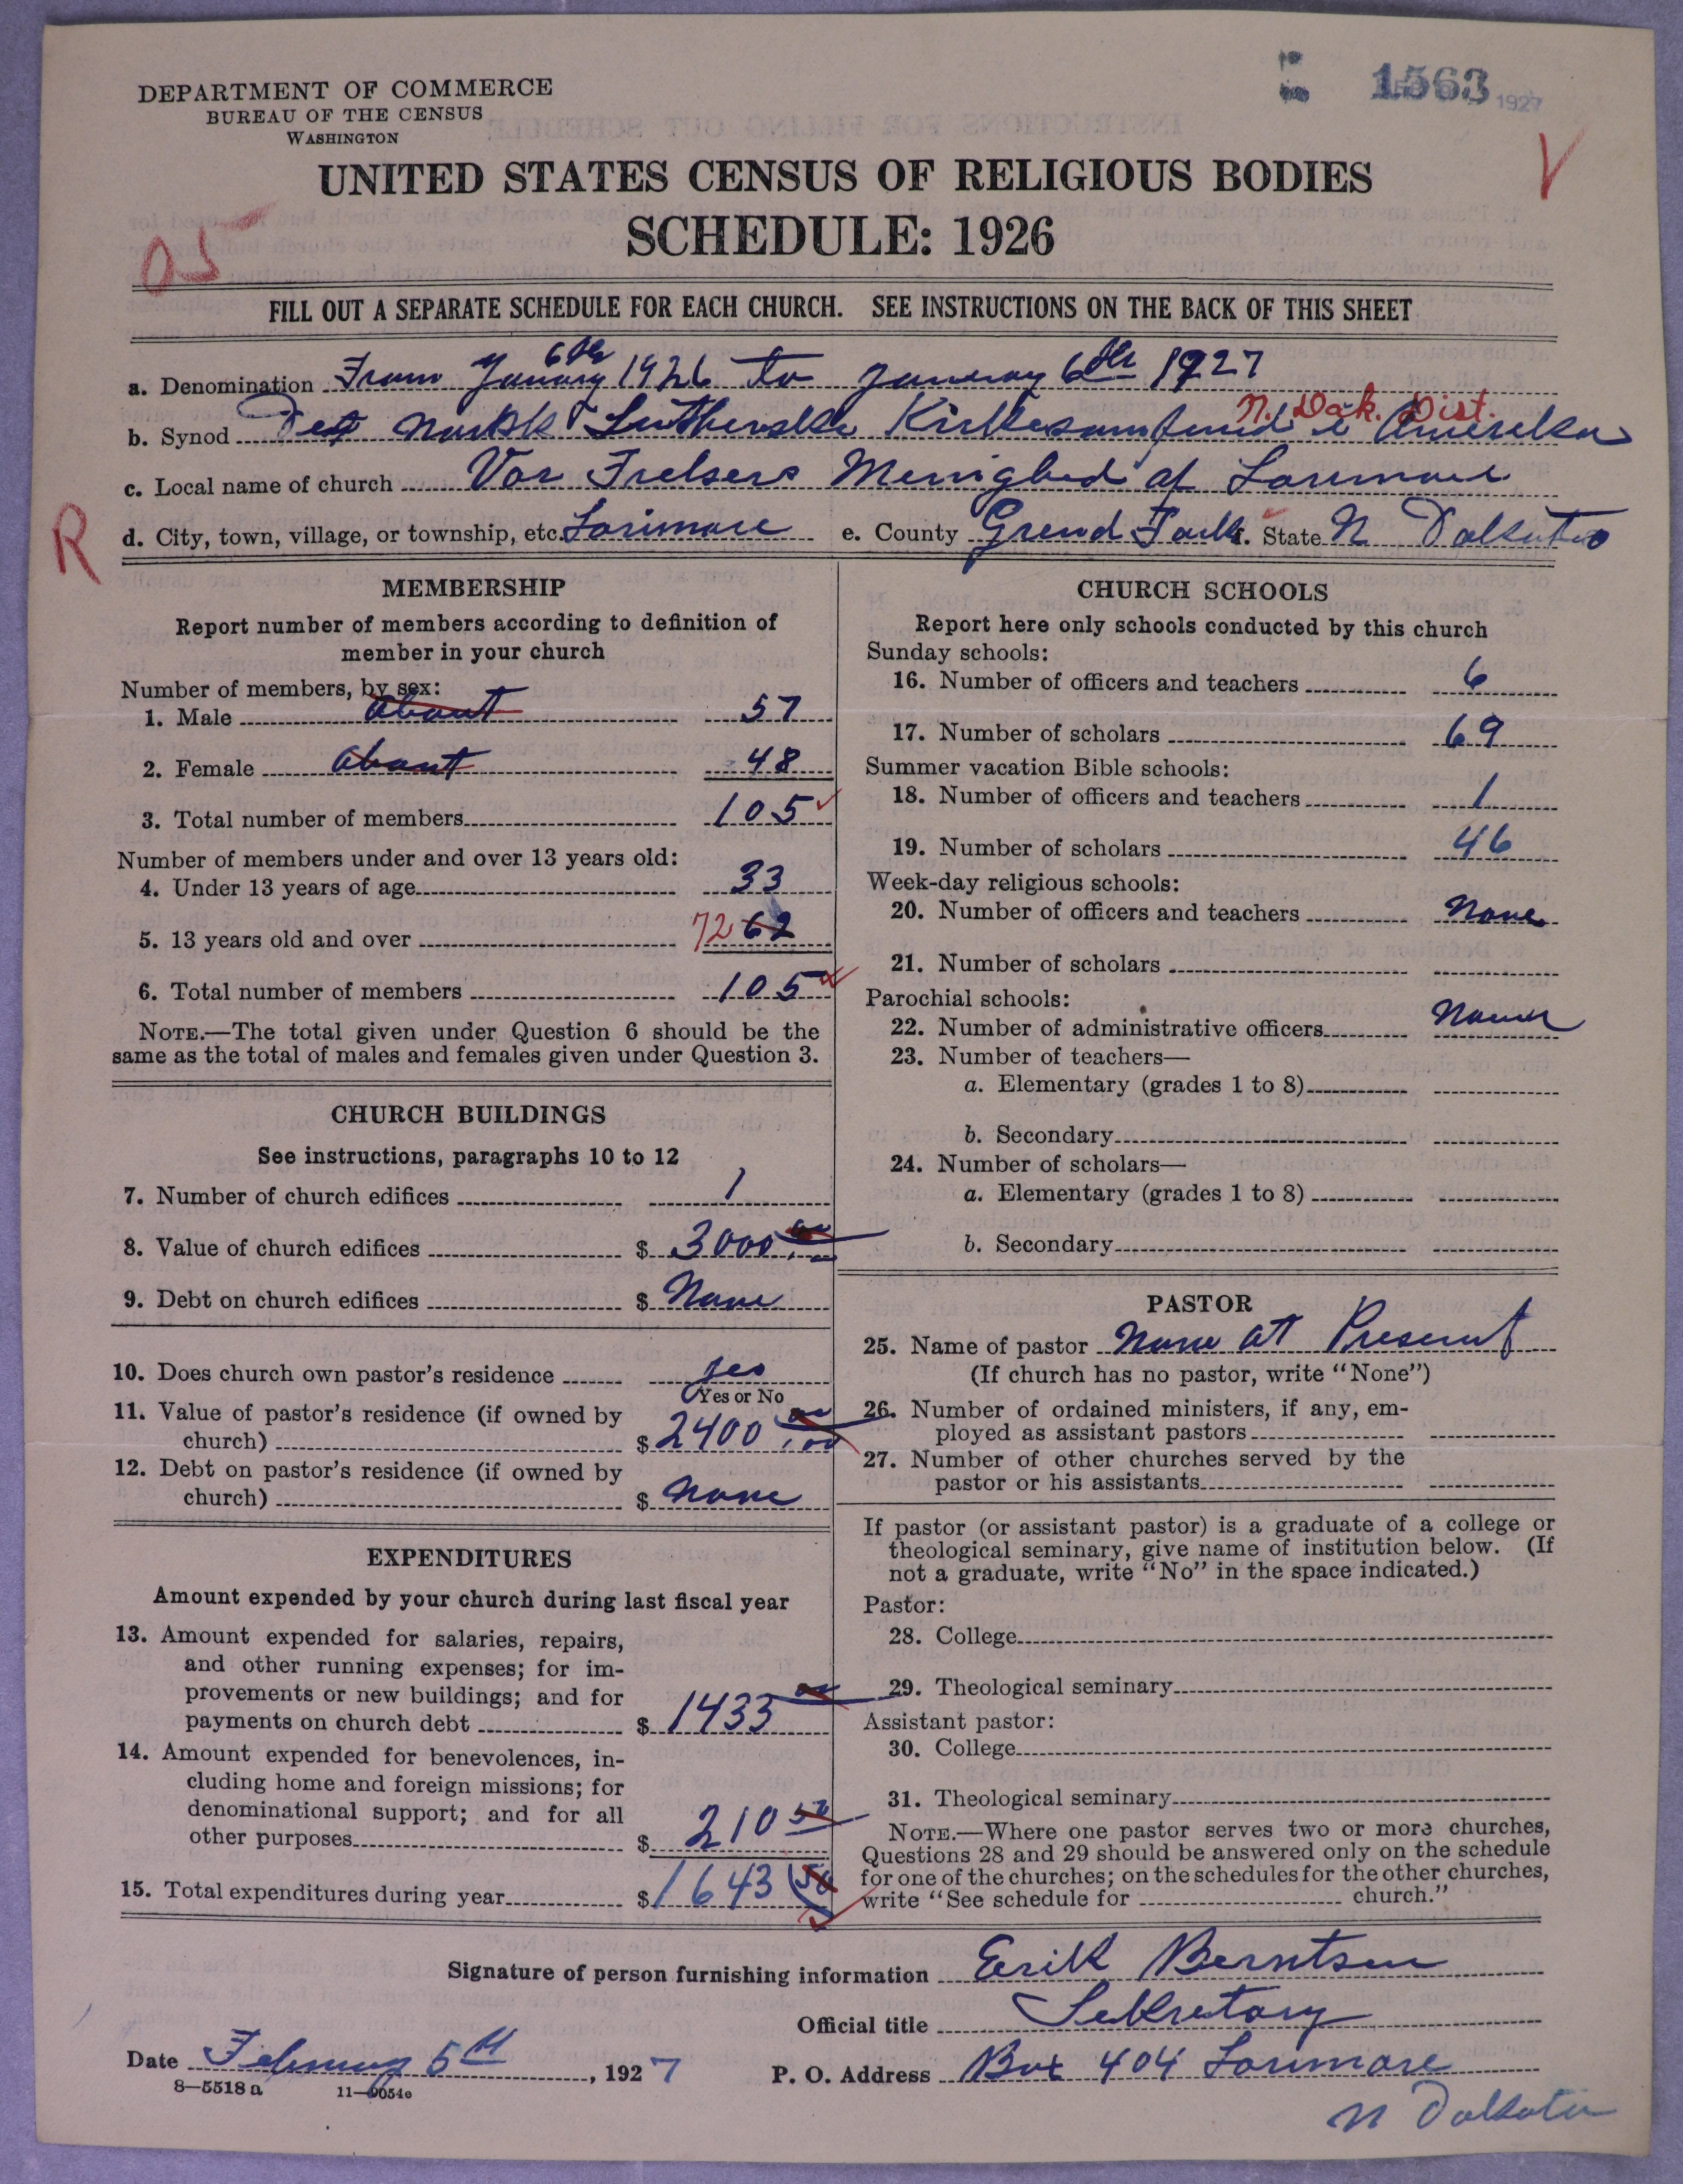 DEPARTMENT OF COMMERCE
BUREAU OF THE CENSUS
WASHINGTON
1563 1927
UNITED STATES CENSUS OF RELIGIOUS BODIES
SCHEDULE: 1926
05
FILL OUT A SEPARATE SCHEDULE FOR EACH CHURCH. SEE INSTRUCTIONS ON THE BACK OF THIS SHEET
a. Denomination From January 6th 1926 to January 6th 1927
N. Dak. Dist.
b. Synod Det Norsk Lutherske Kirkesamfund i Amerika
c. Local name of church Vor Frelsers Menighed af Larimore
d. City, town, village, or township, etc. Larimore e. County Grand Forks f. State N Dakota
R
MEMBERSHIP
Report number of members according to definition of
member in your church
Number of members, by sex:
1. Male about 57
2. Female about 48
3. Total number of members 105
Number of members under and over 13 years old:
4. Under 13 years of age 33
5. 13 years old and over 72 62
6. Total number of members 105
NOTE.—The total given under Question 6 should be the
same as the total of males and females given under Question 3.
CHURCH BUILDINGS
See instructions, paragraphs 10 to 12
7. Number of church edifices 1
8. Value of church edifices $ 3000.00
9. Debt on church edifices $ None
10. Does church own pastor's residence yes
Yes or No
11. Value of pastor's residence (if owned by
church) $ 2400.00
12. Debt on pastor's residence (if owned by
church) $ none
EXPENDITURES
Amount expended by your church during last fiscal year
13. Amount expended for salaries, repairs,
and other running expenses; for im-
provements or new buildings; and for
payments on church debt $ 1433 00
14. Amount expended for benevolences, in-
cluding home and foreign missions; for
denominational support; and for all
other purposes $ 210 50
15. Total expenditures during year $ 1643 50
CHURCH SCHOOLS
Report here only schools conducted by this church
Sunday schools:
16. Number of officers and teachers 6
17. Number of scholars 69
Summer vacation Bible schools:
18. Number of officers and teachers 1
19. Number of scholars 46
Week-day religious schools:
20. Number of officers and teachers None
21. Number of scholars
Parochial schools:
22. Number of administrative officers None
23. Number of teachers—
a. Elementary (grades 1 to 8)
b. Secondary
24. Number of scholars—
a. Elementary (grades 1 to 8)
b. Secondary
PASTOR
25. Name of pastor None at Present
(If church has no pastor, write "None")
26. Number of ordained ministers, if any, em-
ployed as assistant pastors
27. Number of other churches served by the
pastor or his assistants
If pastor (or assistant pastor) is a graduate of a college or
theological seminary, give name of institution below. (If
not a graduate, write "No" in the space indicated.)
Pastor:
28. College
29. Theological seminary
Assistant pastor:
30. College
31. Theological seminary
NOTE.—Where one pastor serves two or more churches,
Questions 28 and 29 should be answered only on the schedule
for one of the churches; on the schedules for the other churches,
write "See schedule for church."
Signature of person furnishing information Erik Berntsen
Official title Sekretary
Date February 5th, 1927 P. O. Address Box 404 Larimore
N Dakota
8—5518 a 11—9054c